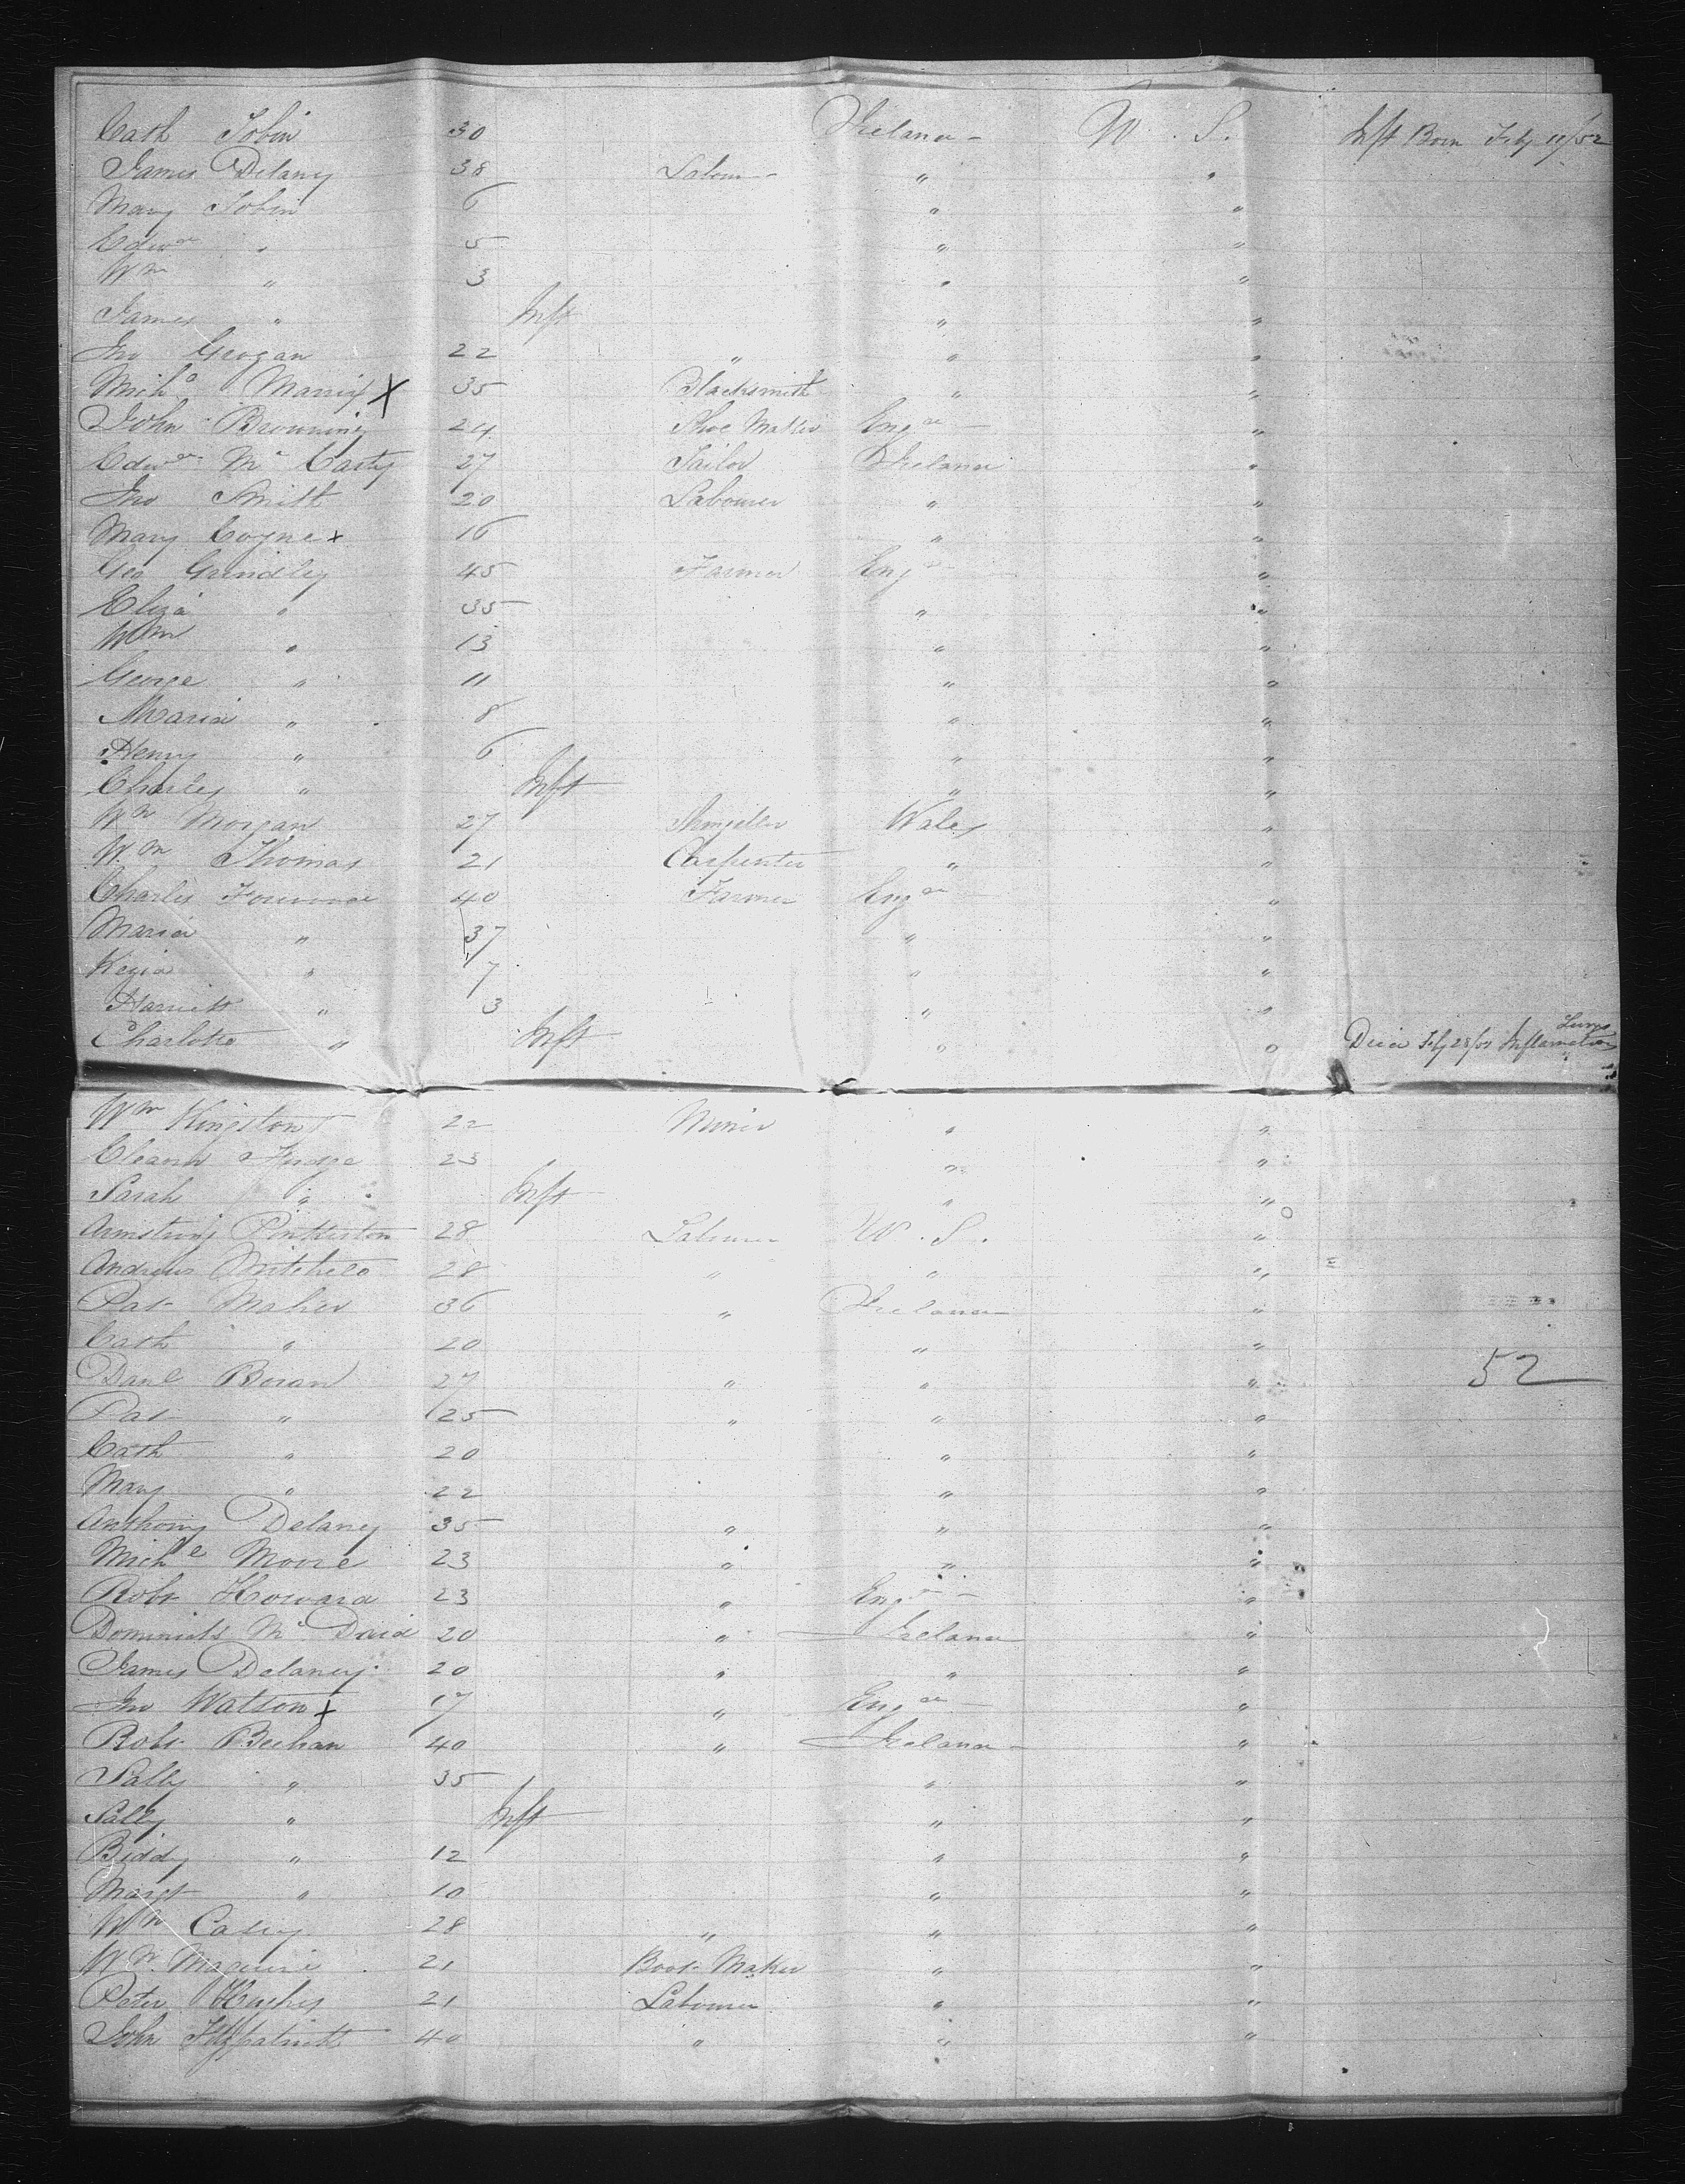 Cath Tobin 30 Ireland U. S. Inft Born Feby 11/52
James Delany 38 Labour " "
Mary Tobin 6 " "
Edwd " 5 " "
Wm " 3 " "
James " Inft " "
Jno Geogan 22 " " "
Mich 35 Blacksmith " "
John Browning 24 Shoe Maker Engd "
Edwd Mc Carty 27 Tailor Ireland "
Jno Smith 20 Labourer " "
Mary Coyne x 16 " "
Geo Grindley 45 Farmer Engd "
Eliza " 35 " "
Wm " 13 " "
George " 11 " "
Maria " 8 " "
Henry " 6 " "
Charles " Inft " "
Wm Morgan 27 Wales "
Wm Thomas 21 Carpenter " "
Charles 40 Farmer Engd "
Maria " 37 " "
Kezia " 7 " "
Harriett " 3 " "
Charlotte " Inft " " Died Feby 28/52 Inflamation Lungs
Wm Kingston 22 Miner " "
Eleanor 23 " "
Sarah " Inft " "
Armstrong Pinkerton 28 Labourer U. S. "
Andrew Mitchell 28 " " "
Pat Maher 36 " Ireland "
Cath " 20 " "
Danl Boran 27 " " " 52
Pat " 25 " " "
Cath " 20 " "
Mary " 22 " "
Anthony Delaney 35 " " "
Michl Moore 23 " " "
Robt Howard 23 " Engd "
Dominick Mc 20 " Ireland "
James Delaney 20 " " "
Jno Watson x 17 " Engd "
Robt Beehan 40 " Ireland "
Sally " 35 " "
Sally " Inft " "
Biddy " 12 " "
Margt " 10 " "
Wm Casey 28 " " "
Wm Maguire 21 Boot Maker " "
Peter Hughes 21 Labourer " "
John Fitzpatrick 40 " " "